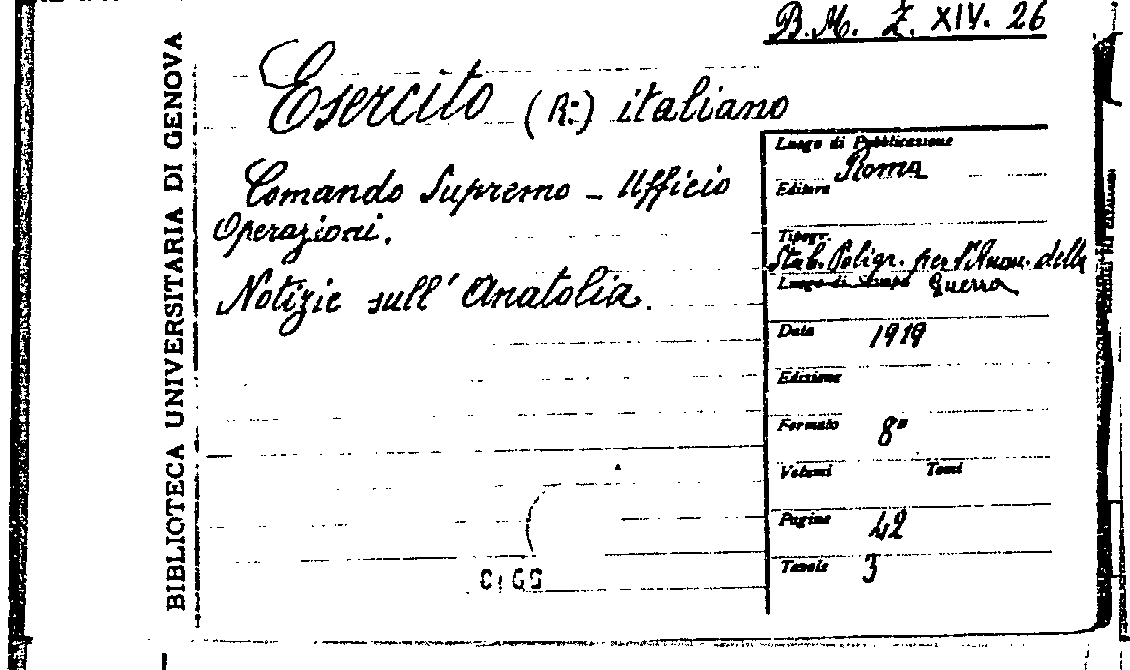 B.M. Z. XIV. 26
BIBLIOTECA UNIVERSITARIA DI GENOVA
Esercito (R:) italiano
Comando Supremo - Ufficio
Operazioni.
Notizie sull' Anatolia.
Luogo di Pubblicazione
Roma
Editore
Tipogr.
Stab. Poligr. per l'Amm. della
Luogo di Stampa Guerra
Data 1919
Edizione
Formato 8°
Volumi Tomi
Pagine 42
Tavole 3